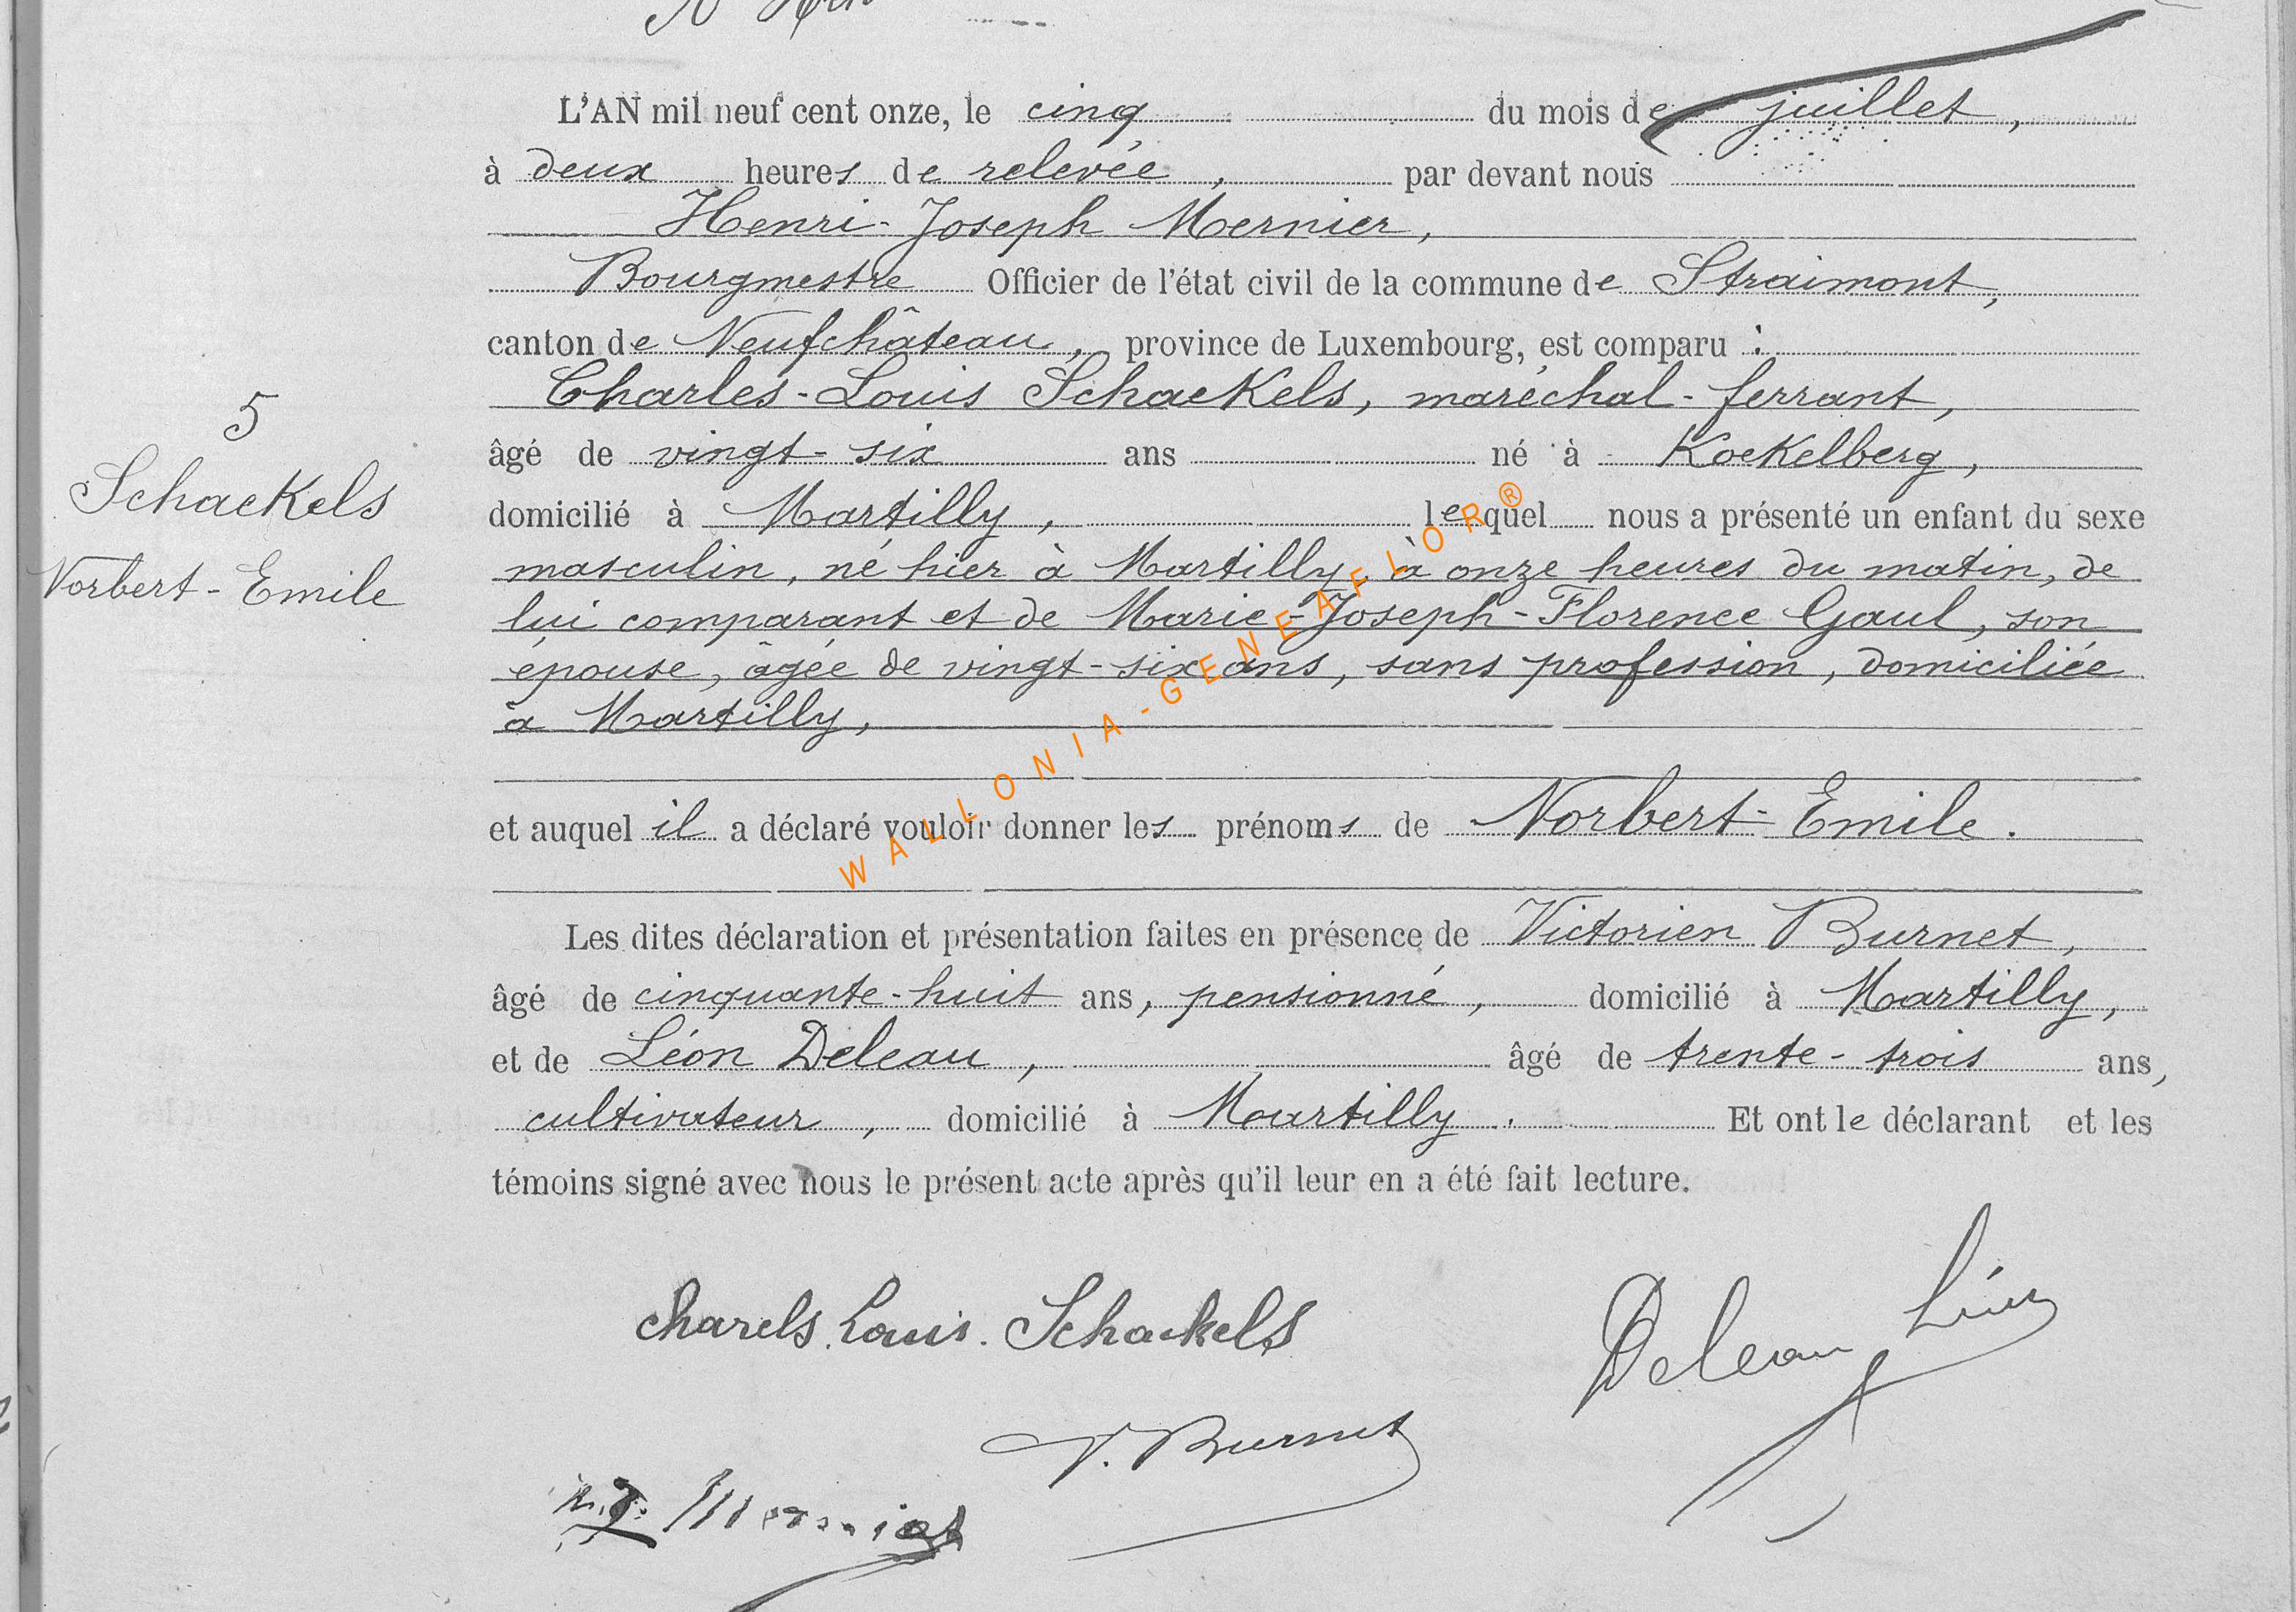 L'AN mil neuf cent onze, le cinq du mois de juillet,
à deux heures de relevée, par devant nous
Henri-Joseph Mernier,
Bourgmestre Officier de l'état civil de la commune de Straimont,
canton de Neufchâteau, province de Luxembourg, est comparu :
Charles-Louis Schaekels, maréchal-ferrant,
âgé de vingt-six ans né à Koekelberg,
domicilié à Martilly, lequel nous a présenté un enfant du sexe
masculin, né hier à Martilly, à onze heures du matin, de
lui comparant et de Marie-Joseph-Florence Gaul, son
épouse, âgée de vingt-six ans, sans profession, domiciliée
à Martilly,
et auquel il a déclaré vouloir donner les prénoms de Norbert-Emile.
Les dites déclaration et présentation faites en présence de Victorien Burnet,
âgé de cinquante-huit ans, pensionné, domicilié à Martilly,
et de Léon Deleau, âgé de trente-trois ans,
cultivateur, domicilié à Martilly. Et ont le déclarant et les
témoins signé avec nous le présent acte après qu'il leur en a été fait lecture.
5
Schaekels
Norbert-Emile
charels. Louis. Schaekels
Deleau Léon
V. Burnet
H. J. Mernier
WALLONIA-GENEAFLOR®